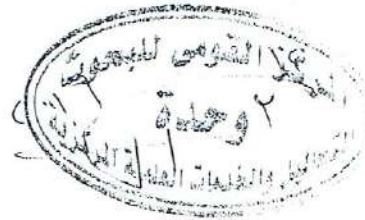 المركز القومى للبحوث
وحدة ٢
التحاليل والخدمات العلمية المركزية